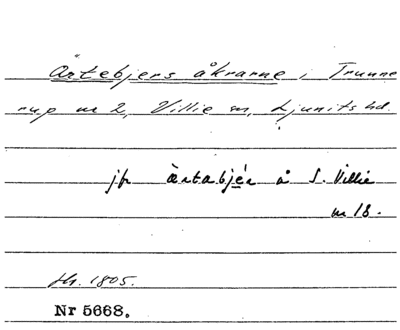 Ärtebjers åkrarne i Trunne
rup nr 2, Villie sn, Ljunits hd.
jfr ärtabjér å S. Villie
nr 18.
1805.
Nr 5668.